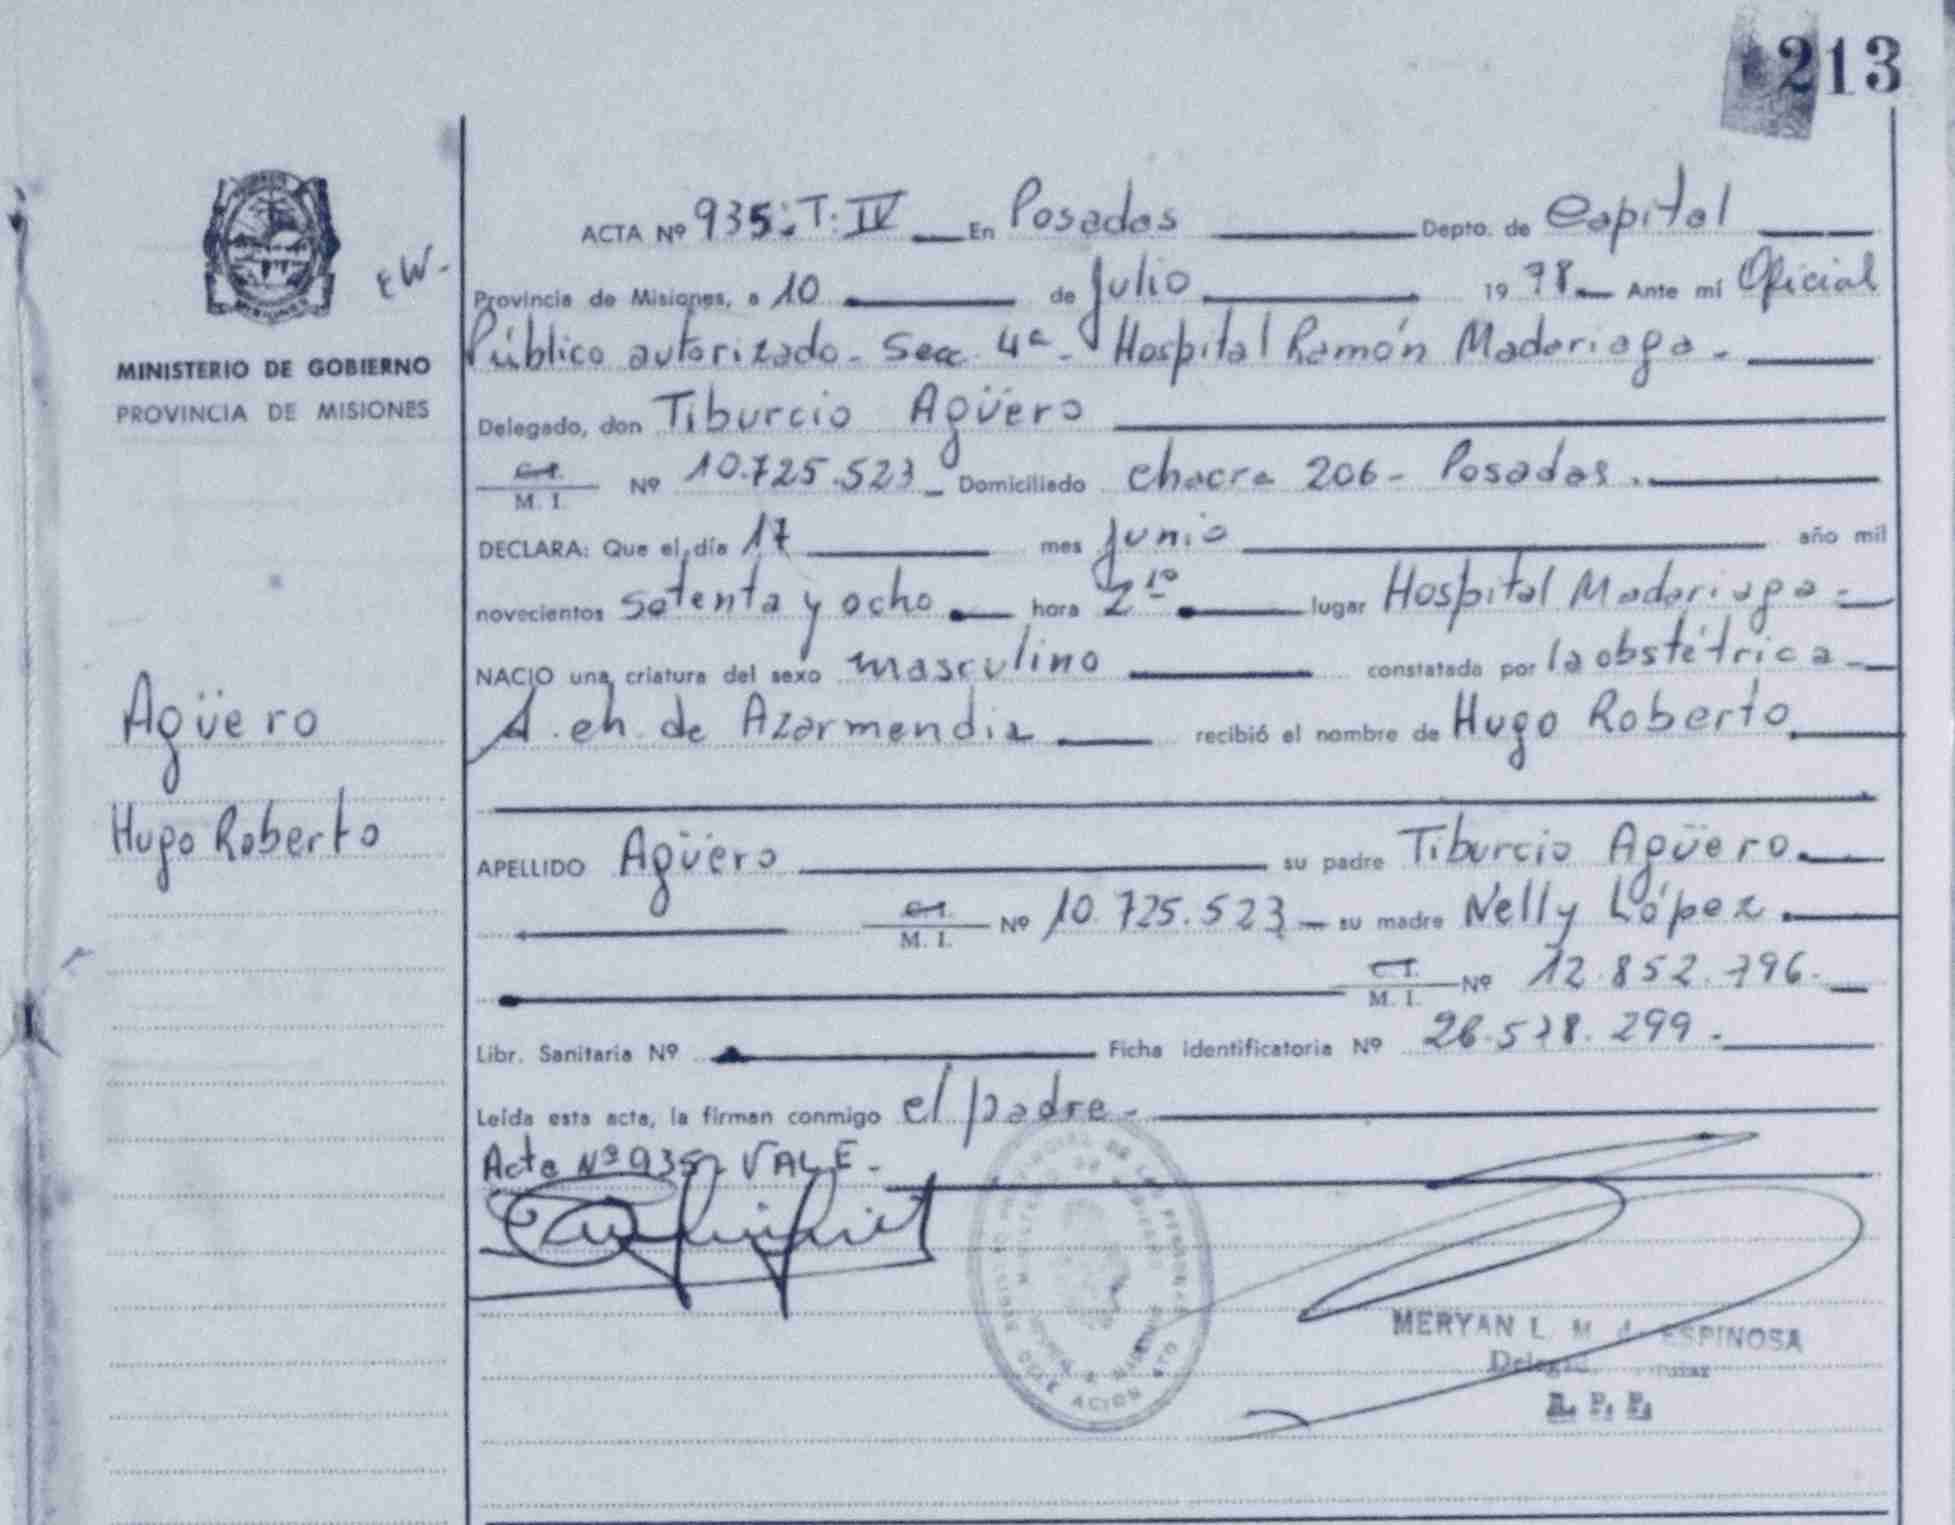 213
ACTA Nº 935: T: IV En Posadas Depto. de Capital
EW-
Provincia de Misiones, a 10 de Julio 1978 Ante mí Oficial
Público autorizado - Secc. 4ª - Hospital Ramón Madariaga -
MINISTERIO DE GOBIERNO
PROVINCIA DE MISIONES
Delegado, don Tiburcio Agüero
C.I. M. I. Nº 10.725.523 - Domiciliado chacra 206 - Posadas.
DECLARA: Que el día 17 mes Junio año mil
novecientos setenta y ocho hora lugar Hospital Madariaga -
NACIO una criatura del sexo masculino constatada por la obstétrica -
de Azarmendia recibió el nombre de Hugo Roberto
Agüero
Hugo Roberto
APELLIDO Agüero su padre Tiburcio Agüero
C.I. M. I. Nº 10.725.523 - su madre Nelly López
C.I. M. I. Nº 12.852.796.
Libr. Sanitaria Nº Ficha identificatoria Nº 26.578.299.
Leída esta acta, la firman conmigo el padre -
Acta Nº 935, VALE -
MERYAN L. M. d. ESPINOSA
R. P. P.